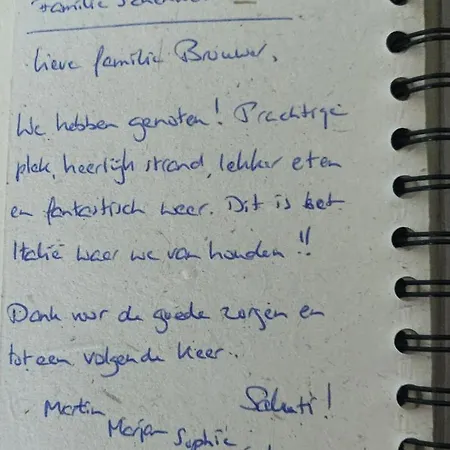 Familie
Lieve familie Brouwer,
We hebben genoten! Prachtige
plek, heerlijk strand, lekker eten
en fantastisch weer. Dit is het
Italië waar we van houden!!
Dank voor de goede zorgen en
tot een volgende keer.
Saluti!
Martin
Marjan Sophie